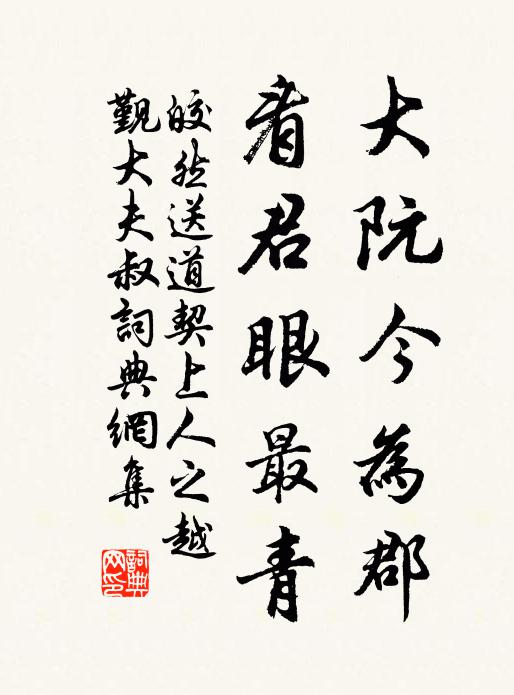 大阮今為郡
看君眼最青
皎然送道契上人之越
覲大夫叔詞典網集
詞典
网印